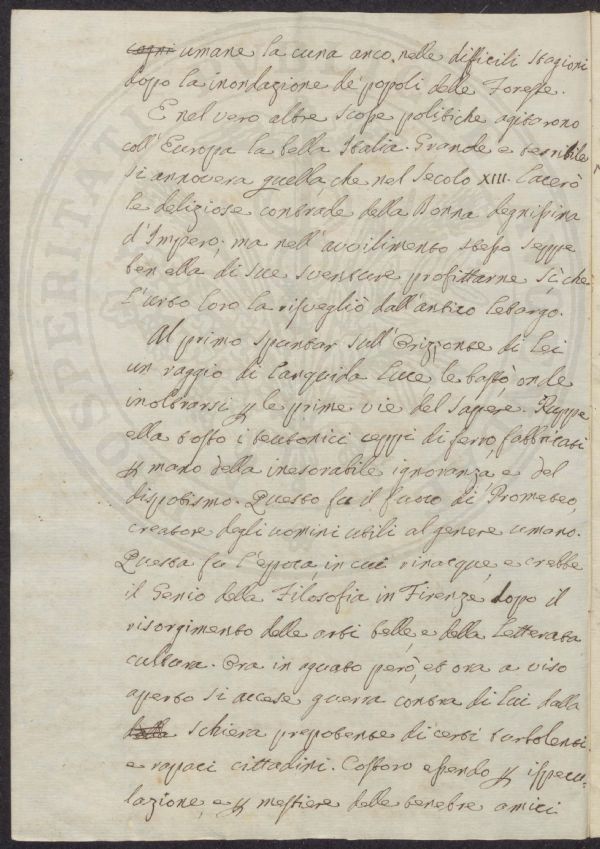 umane la cuna anco nelle difficili stagioni
dopo la inondazione de' popoli delle Foreste.
E nel vero altre scosse politiche agitarono
coll'Europa la bella Italia. Grande e terribile
si annovera quella che nel secolo XIII. lacerò
le deliziose contrade della Donna degnissima
d'Impero; ma nell'avvilimento stesso seppe
ben ella di sue sventure profittarne, sì che
l'urto loro la risvegliò dall'antico letargo.
Al primo spuntar sull'Orizzonte di lei
un raggio di languida luce le bastò, onde
inoltrarsi p le prime vie del sapere. Ruppe
ella tosto i teutonici ceppi di ferro, fabbricati
p mano della inesorabile ignoranza, e del
dispotismo. Questo fu il fuoco di Prometeo,
creatore degli uomini utili al genere umano.
Questa fu l'epoca, in cui rinacque, e crebbe
il Genio della Filosofia in Firenze dopo il
risorgimento delle arti belle, e della letterata
cultura. Ora in aguato però, et ora a viso
aperto si accese guerra contra di lui dalla
schiera prepotente di certi turbolenti
e rapaci cittadini. Costoro essendo p ispecu-
lazione, e p mestiere delle tenebre amici